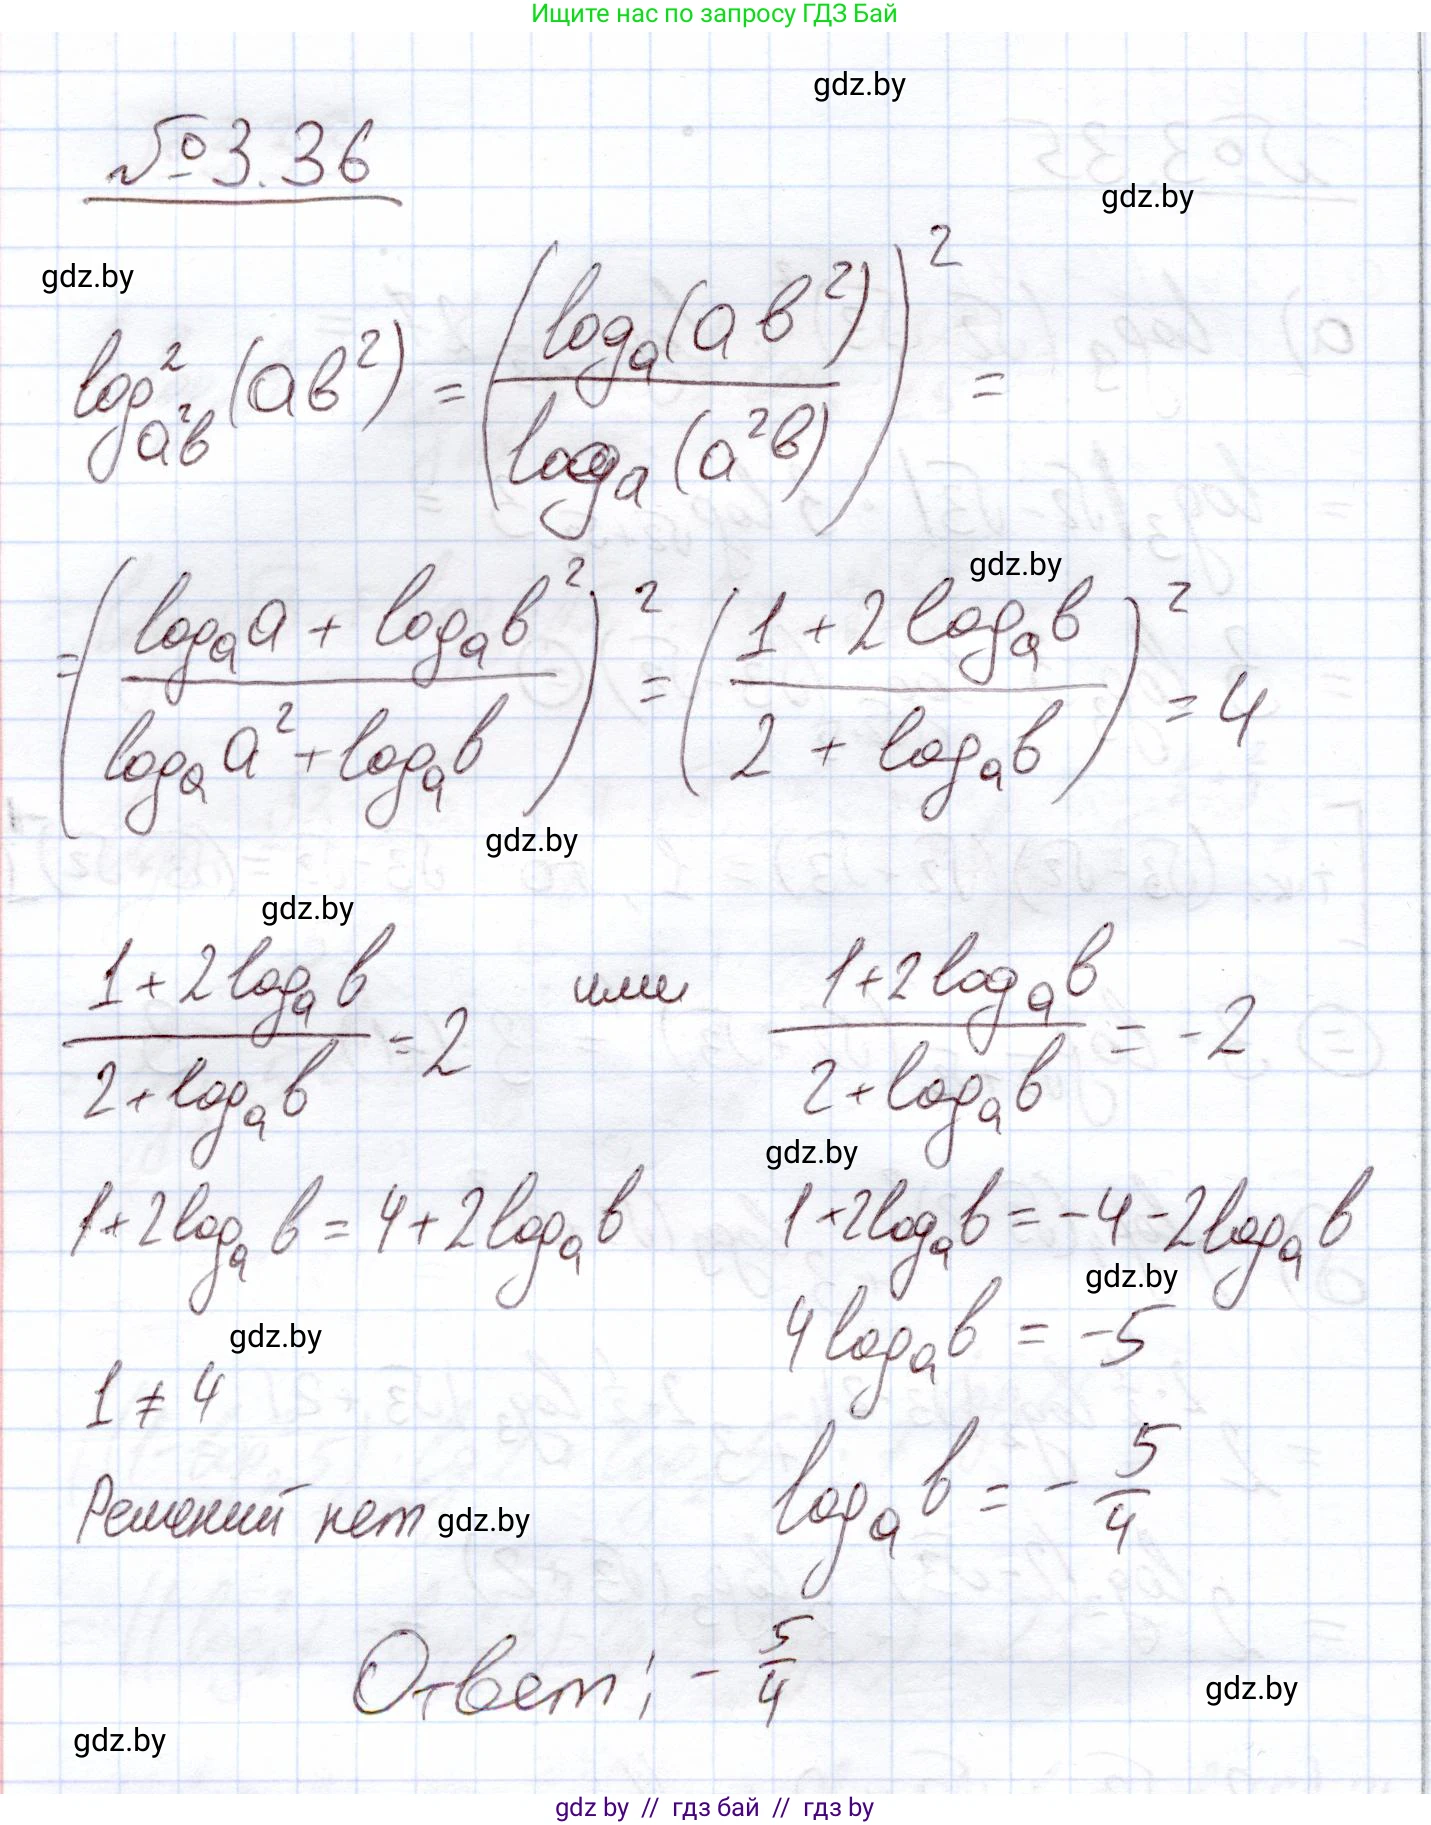 Ищите нас по запросу ГДЗ Бай
gdz.by
№3.36
gdz.by
gdz.by
log²_{a²b}(ab²) = (log_a(ab²) / log_a(a²b))² =
gdz.by
= ((log_a a + log_a b²) / (log_a a² + log_a b))² = ((1 + 2log_a b) / (2 + log_a b))² = 4
gdz.by
gdz.by
(1 + 2log_a b) / (2 + log_a b) = 2 или (1 + 2log_a b) / (2 + log_a b) = -2
gdz.by
1 + 2log_a b = 4 + 2log_a b 1 + 2log_a b = -4 - 2log_a b
gdz.by
gdz.by 4log_a b = -5
1 ≠ 4
log_a b = -5/4
Решений нет gdz.by
Ответ: -5/4
gdz.by
gdz.by
gdz.by // гдз бай // гдз by